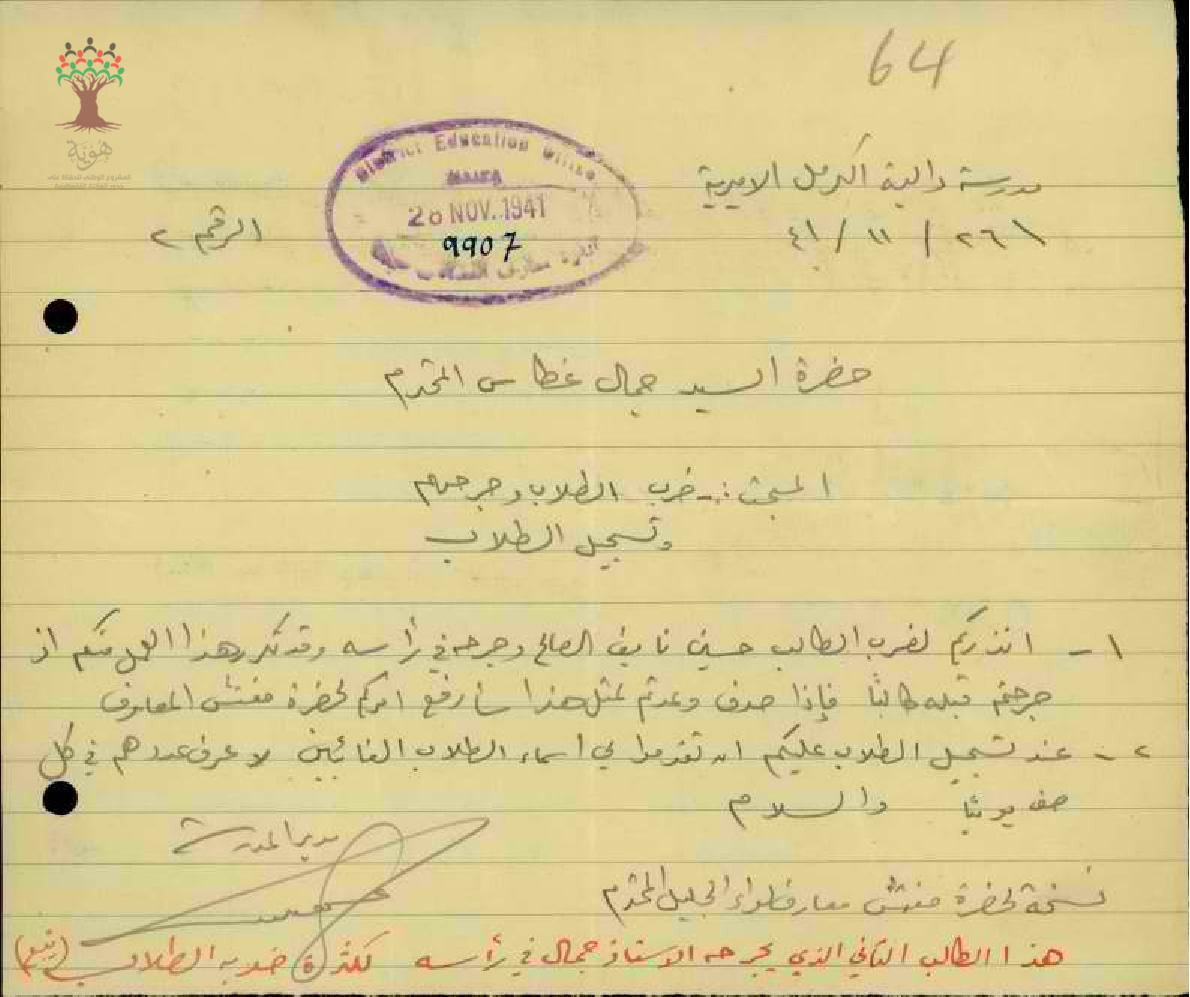 64
هوية
District Education Office
HAIFA
20 NOV. 1941
9907
مدرسة دالية الكرمل الاميرية
٢٦ / ١١ / ٤١
الرقم ٢
حضرة السيد جمال غطاس المحترم
المبحث :- ضرب الطلاب وجرحهم
وتسجيل الطلاب
١ - انذركم لضرب الطالب حسين نايف الصالح وجرحه في رأسه وقد تكرر هذا العمل منكم اذ
جرحتم قبله طالبًا فإذا صدف وعدتم لمثل هذا سأرفع امركم لحضرة مفتش المعارف
٢ - عند تسجيل الطلاب عليكم ان تقدموا لي اسماء الطلاب الغائبين لاعرف عددهم في كل
صف يوميًا والسلام
مدير المدرسة
نسخة لحضرة مفتش معارف لواء الجليل المحترم
هذا الطالب الثاني الذي يجرحه الاستاذ جمال في رأسه لكثرة ضربه الطلاب